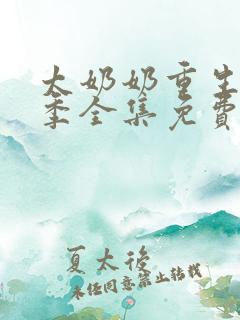 大奶奶重生
季全集免费
夏太後
未经同意禁止转载